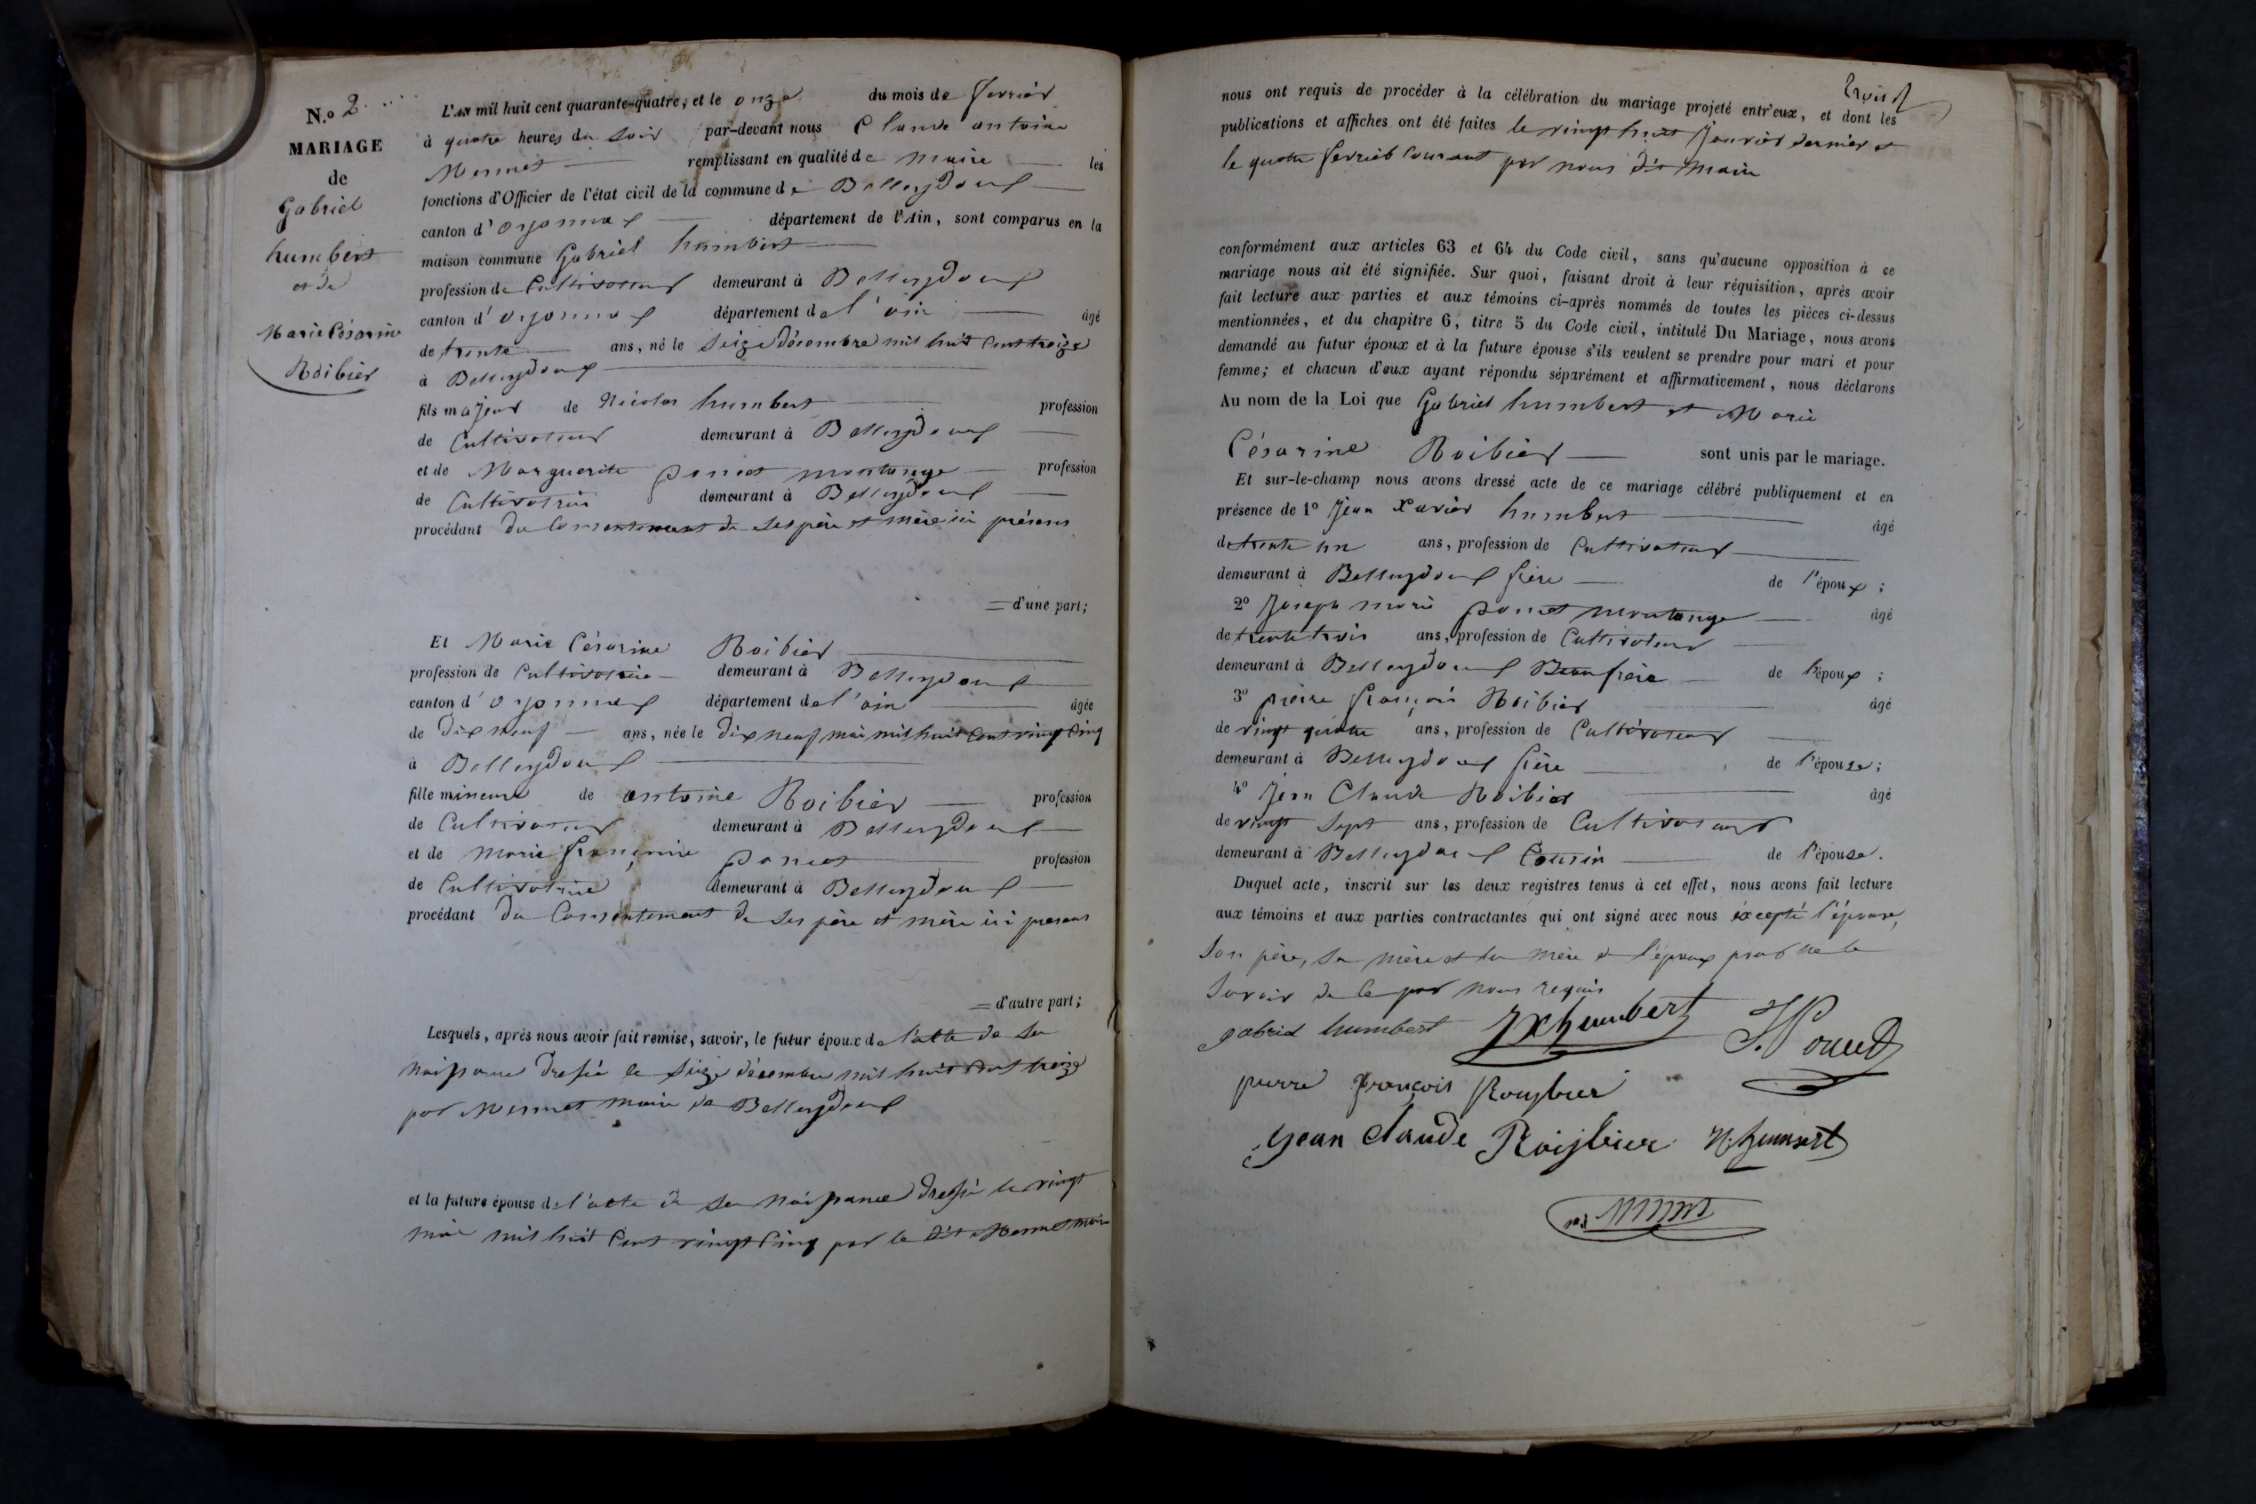 N.o 2
MARIAGE
de
Gabriel
humbert
et de
Marie Césarine
Roibier
L'AN mil huit cent quarante-quatre, et le onze du mois de fevrier
à quatre heures du soir par-devant nous Claude antoine
Mermet remplissant en qualité de maire les
fonctions d'Officier de l'état civil de la commune de Belleydoux
canton d'oyonnax département de l'Ain, sont comparus en la
maison commune Gabriel humbert
profession de Cultivateur demeurant à Belleydoux
canton d'oyonnax département de l'ain âgé
de trente ans, né le Seize décembre mil huit Cent treize
à Belleydoux
fils majeur de Nicolas humbert profession
de Cultivateur demeurant à Belleydoux
et de Marguerite poncet montange profession
de Cultivatrice demeurant à Belleydoux
procédant du Consentement de Ses père et mère ici présens
d'une part;
Et Marie Césarine Roibier
profession de Cultivatrice demeurant à Belleydoux
canton d'oyonnax département de l'ain âgée
de Dix neuf ans, née le dix neuf mai mil huit Cent vingt Cinq
à Belleydoux
fille mineure de antoine Roibier profession
de Cultivateur demeurant à Belleydoux
et de Marie françoise poncet profession
de Cultivatrice demeurant à Belleydoux
procédant du Consentement de Ses père et mère ici presens
d'autre part;
Lesquels, après nous avoir fait remise, savoir, le futur époux de l'acte de Sa
naissance dressé le Seize décembre mil huit Cent treize
par Mermet maire de Belleydoux
et la future épouse de l'acte de Sa naissance dressé le vingt
mai mil huit Cent vingt Cinq par le dit Mermet maire
trois
nous ont requis de procéder à la célébration du mariage projeté entr'eux, et dont les
publications et affiches ont été faites le vingt huit Janvier dernier et
le quatre fevrier Courant par nous dit maire
conformément aux articles 63 et 64 du Code civil, sans qu'aucune opposition à ce
mariage nous ait été signifiée. Sur quoi, faisant droit à leur réquisition, après avoir
fait lecture aux parties et aux témoins ci-après nommés de toutes les pièces ci-dessus
mentionnées, et du chapitre 6, titre 5 du Code civil, intitulé Du Mariage, nous avons
demandé au futur époux et à la future épouse s'ils veulent se prendre pour mari et pour
femme; et chacun d'eux ayant répondu séparément et affirmativement, nous déclarons
Au nom de la Loi que Gabriel humbert et Marie
Césarine Roibier sont unis par le mariage.
Et sur-le-champ nous avons dressé acte de ce mariage célébré publiquement et en
présence de 1o Jean Xavier humbert âgé
de trente un ans, profession de Cultivateur
demeurant à Belleydoux frère de l'époux;
2o Joseph marie poncet montange âgé
de trente trois ans, profession de Cultivateur
demeurant à Belleydoux Beau frère de l'époux;
3o pierre françois Roibier âgé
de vingt quatre ans, profession de Cultivateur
demeurant à Belleydoux frère de l'épouse;
4o Jean Claude Roibier âgé
de vingt Sept ans, profession de Cultivateur
demeurant à Belleydoux Cousin de l'épouse.
Duquel acte, inscrit sur les deux registres tenus à cet effet, nous avons fait lecture
aux témoins et aux parties contractantes qui ont signé avec nous excepté l'épouse,
Son père, Sa mère et la mère de l'époux pour ne le
Savoir de ce par nous requis
gabriel humbert JX humbert J. Poncet
pierre françois Roijbier
Jean claude Roijbier N humbert
Mermet